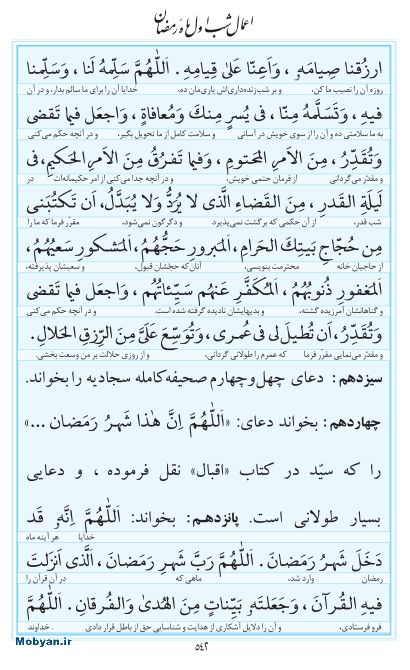 اعمال شب اول ماه رمضان
ارزُقنا صِیامَهُ، وَاَعِنّا عَلیٰ قِیامِهِ. اَللّٰهُمَّ سَلِّمهُ لَنا، وَسَلِّمنا
روزه آن را نصیب ما کن، و بر شب‌زنده‌داری‌اش یاری‌مان ده. خدایا آن را برای ما سالم بدار، و در آن
فیهِ، وَتَسَلَّمهُ مِنّا، فی یُسرٍ مِنكَ وَمُعافاةٍ، وَاجعَل فیما تَقضی
به ما سلامتی ده و آن را از سوی خویش در آسانی و سلامت کامل از ما تحویل بگیر. و در آنچه حکم می‌کنی
وَتُقَدِّرُ، مِنَ الاَمرِ المَحتومِ، وَفیما تَفرُقُ مِنَ الاَمرِ الحَکیمِ، فی
و مقدّر می‌گردانی از فرمان حتمی خویش، و در آنچه جدا می‌کنی از امر حکیمانه‌ات در
لَیلَةِ القَدرِ، مِنَ القَضاءِ الَّذی لا یُرَدُّ وَلا یُبَدَّلُ، اَن تَکتُبَنی
شب قدر، از آن حکمی که برگشت نمی‌پذیرد و دگرگون نمی‌شود، مقرّر فرما که ما را
مِن حُجّاجِ بَیتِكَ الحَرامِ، اَلمَبرورِ حَجُّهُم، اَلمَشکورِ سَعیُهُم،
از حاجیان خانه محترمت بنویسی، آنان‌که حجّشان قبول، و سعیشان پذیرفته،
اَلمَغفورِ ذُنوبُهُم، اَلمُکَفَّرِ عَنهُم سَیِّئاتُهُم، وَاجعَل فیما تَقضی
و گناهانشان آمرزیده گشته، و بدیهایشان نادیده گرفته شده است. و در آنچه حکم می‌کنی
وَتُقَدِّرُ، اَن تُطیلَ لی فی عُمری، وَتُوَسِّعَ عَلَیَّ مِنَ الرِّزقِ الحَلالِ.
و مقدر می‌نمایی مقرر فرما که عمرم را طولانی گردانی، و از روزی حلالت بر من وسعت بخشی.
سیزدهم: دعای چهل و چهارم صحیفه کامله سجادیه را بخواند.
چهاردهم: بخواند دعای: «اَللّٰهُمَّ اِنَّ هٰذا شَهرُ رَمَضان ...»
را که سیّد در کتاب «اقبال» نقل فرموده ، و دعایی
بسیار طولانی است. پانزدهم: بخواند: اَللّٰهُمَّ اِنَّهُ قَد
خدایا هر آینه ماه
دَخَلَ شَهرُ رَمَضانَ. اَللّٰهُمَّ رَبَّ شَهرِ رَمَضانَ، اَلَّذی اَنزَلتَ
رمضان وارد شد، ماهی که در آن قرآن را
فیهِ القُرآنَ، وَجَعَلتَهُ بَیِّناتٍ مِنَ الهُدیٰ وَالفُرقانِ. اَللّٰهُمَّ
فرو فرستادی، و آن را دلایل آشکاری از هدایت و شناسایی حق از باطل قرار دادی. خداوند
۵۴۲
Mobyan.ir